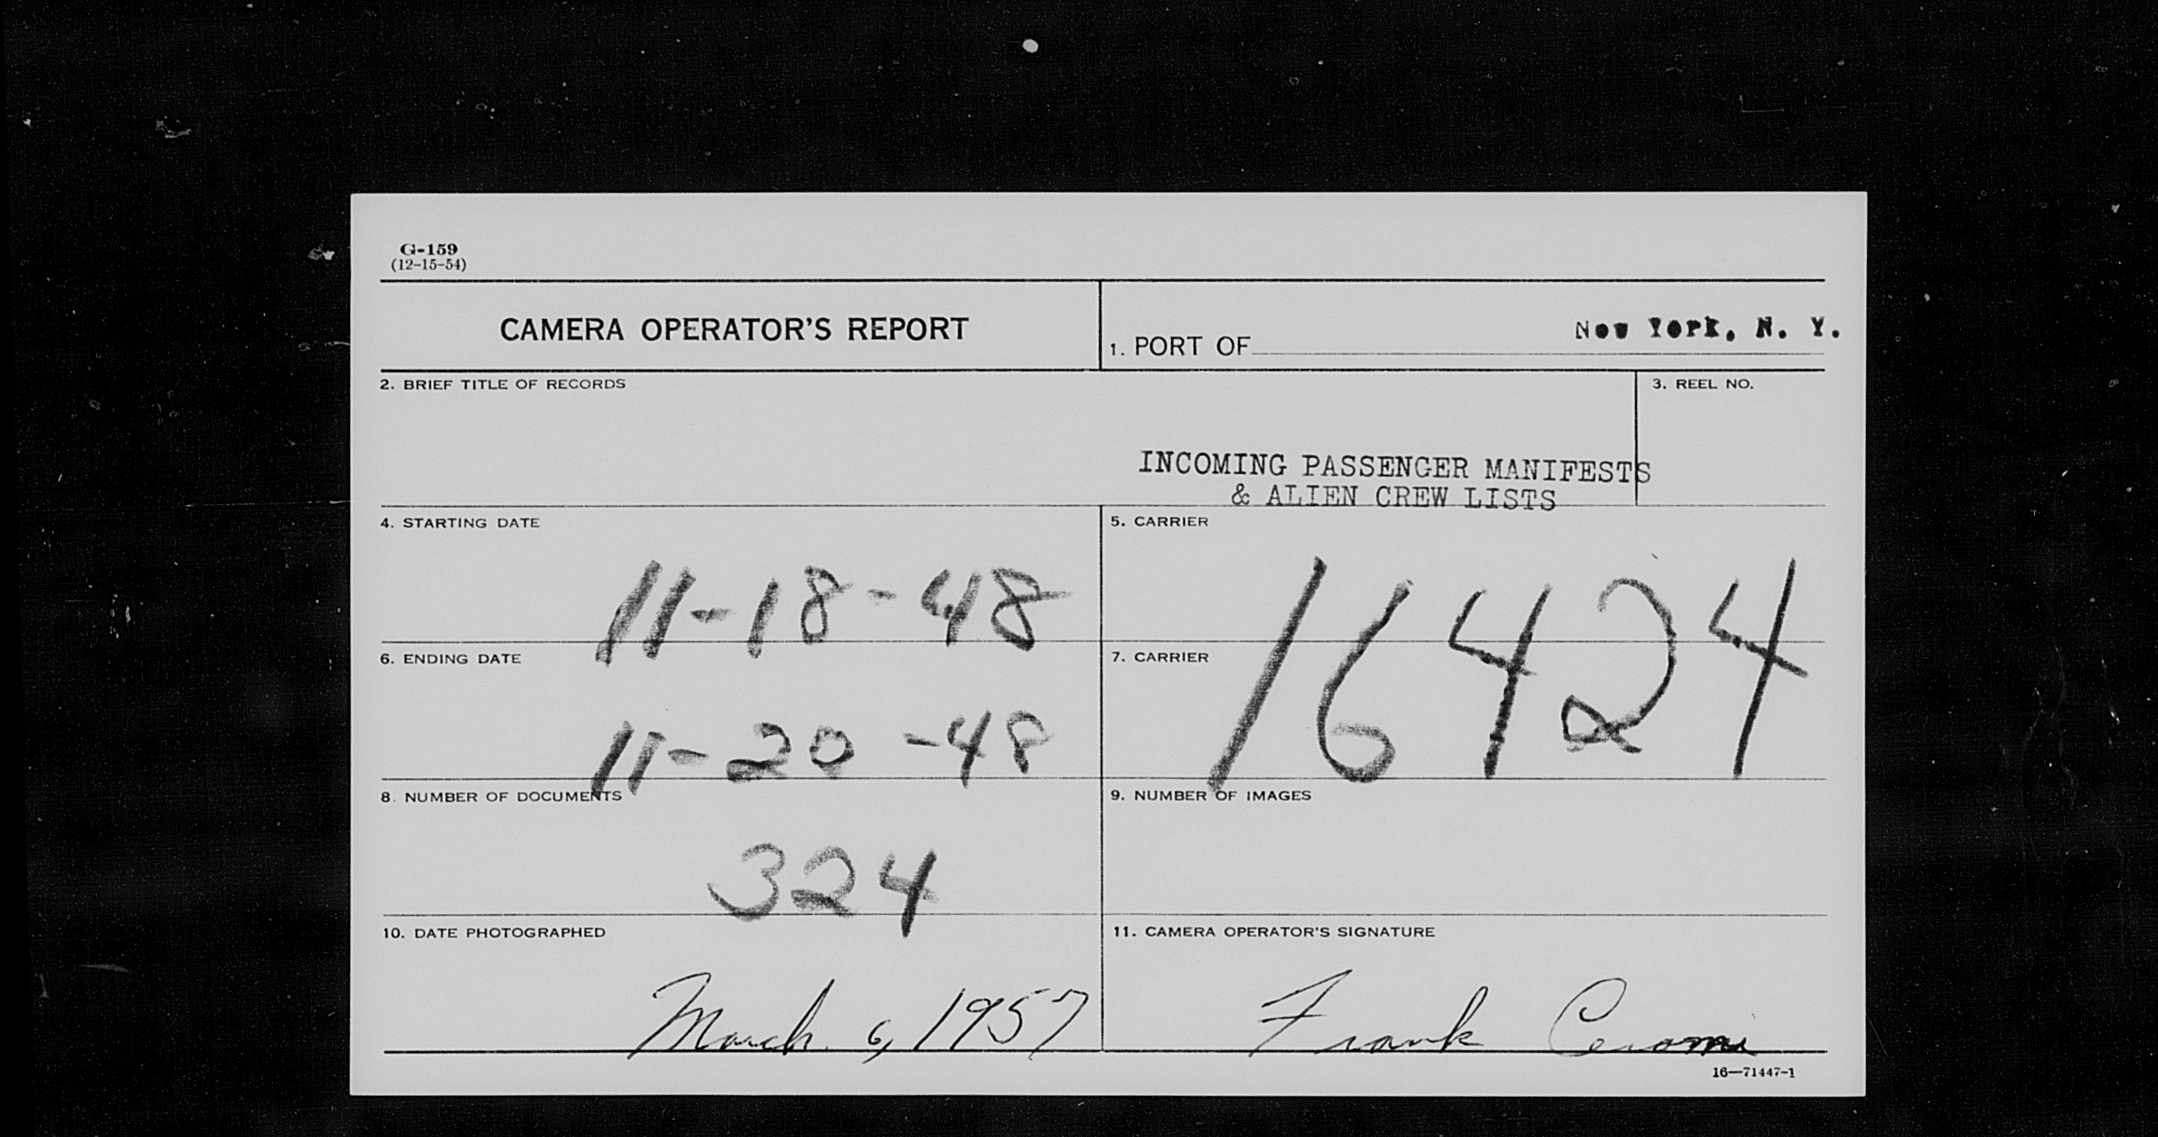 G-159
(12-15-54)
CAMERA OPERATOR'S REPORT
1. PORT OF
New York, N. Y.
2. BRIEF TITLE OF RECORDS
3. REEL NO.
INCOMING PASSENGER MANIFESTS
& ALIEN CREW LISTS
4. STARTING DATE
11-18-48
5. CARRIER
16424
6. ENDING DATE
11-20-48
7. CARRIER
8. NUMBER OF DOCUMENTS
324
9. NUMBER OF IMAGES
10. DATE PHOTOGRAPHED
March 6, 1957
11. CAMERA OPERATOR'S SIGNATURE
Frank
16—71447-1